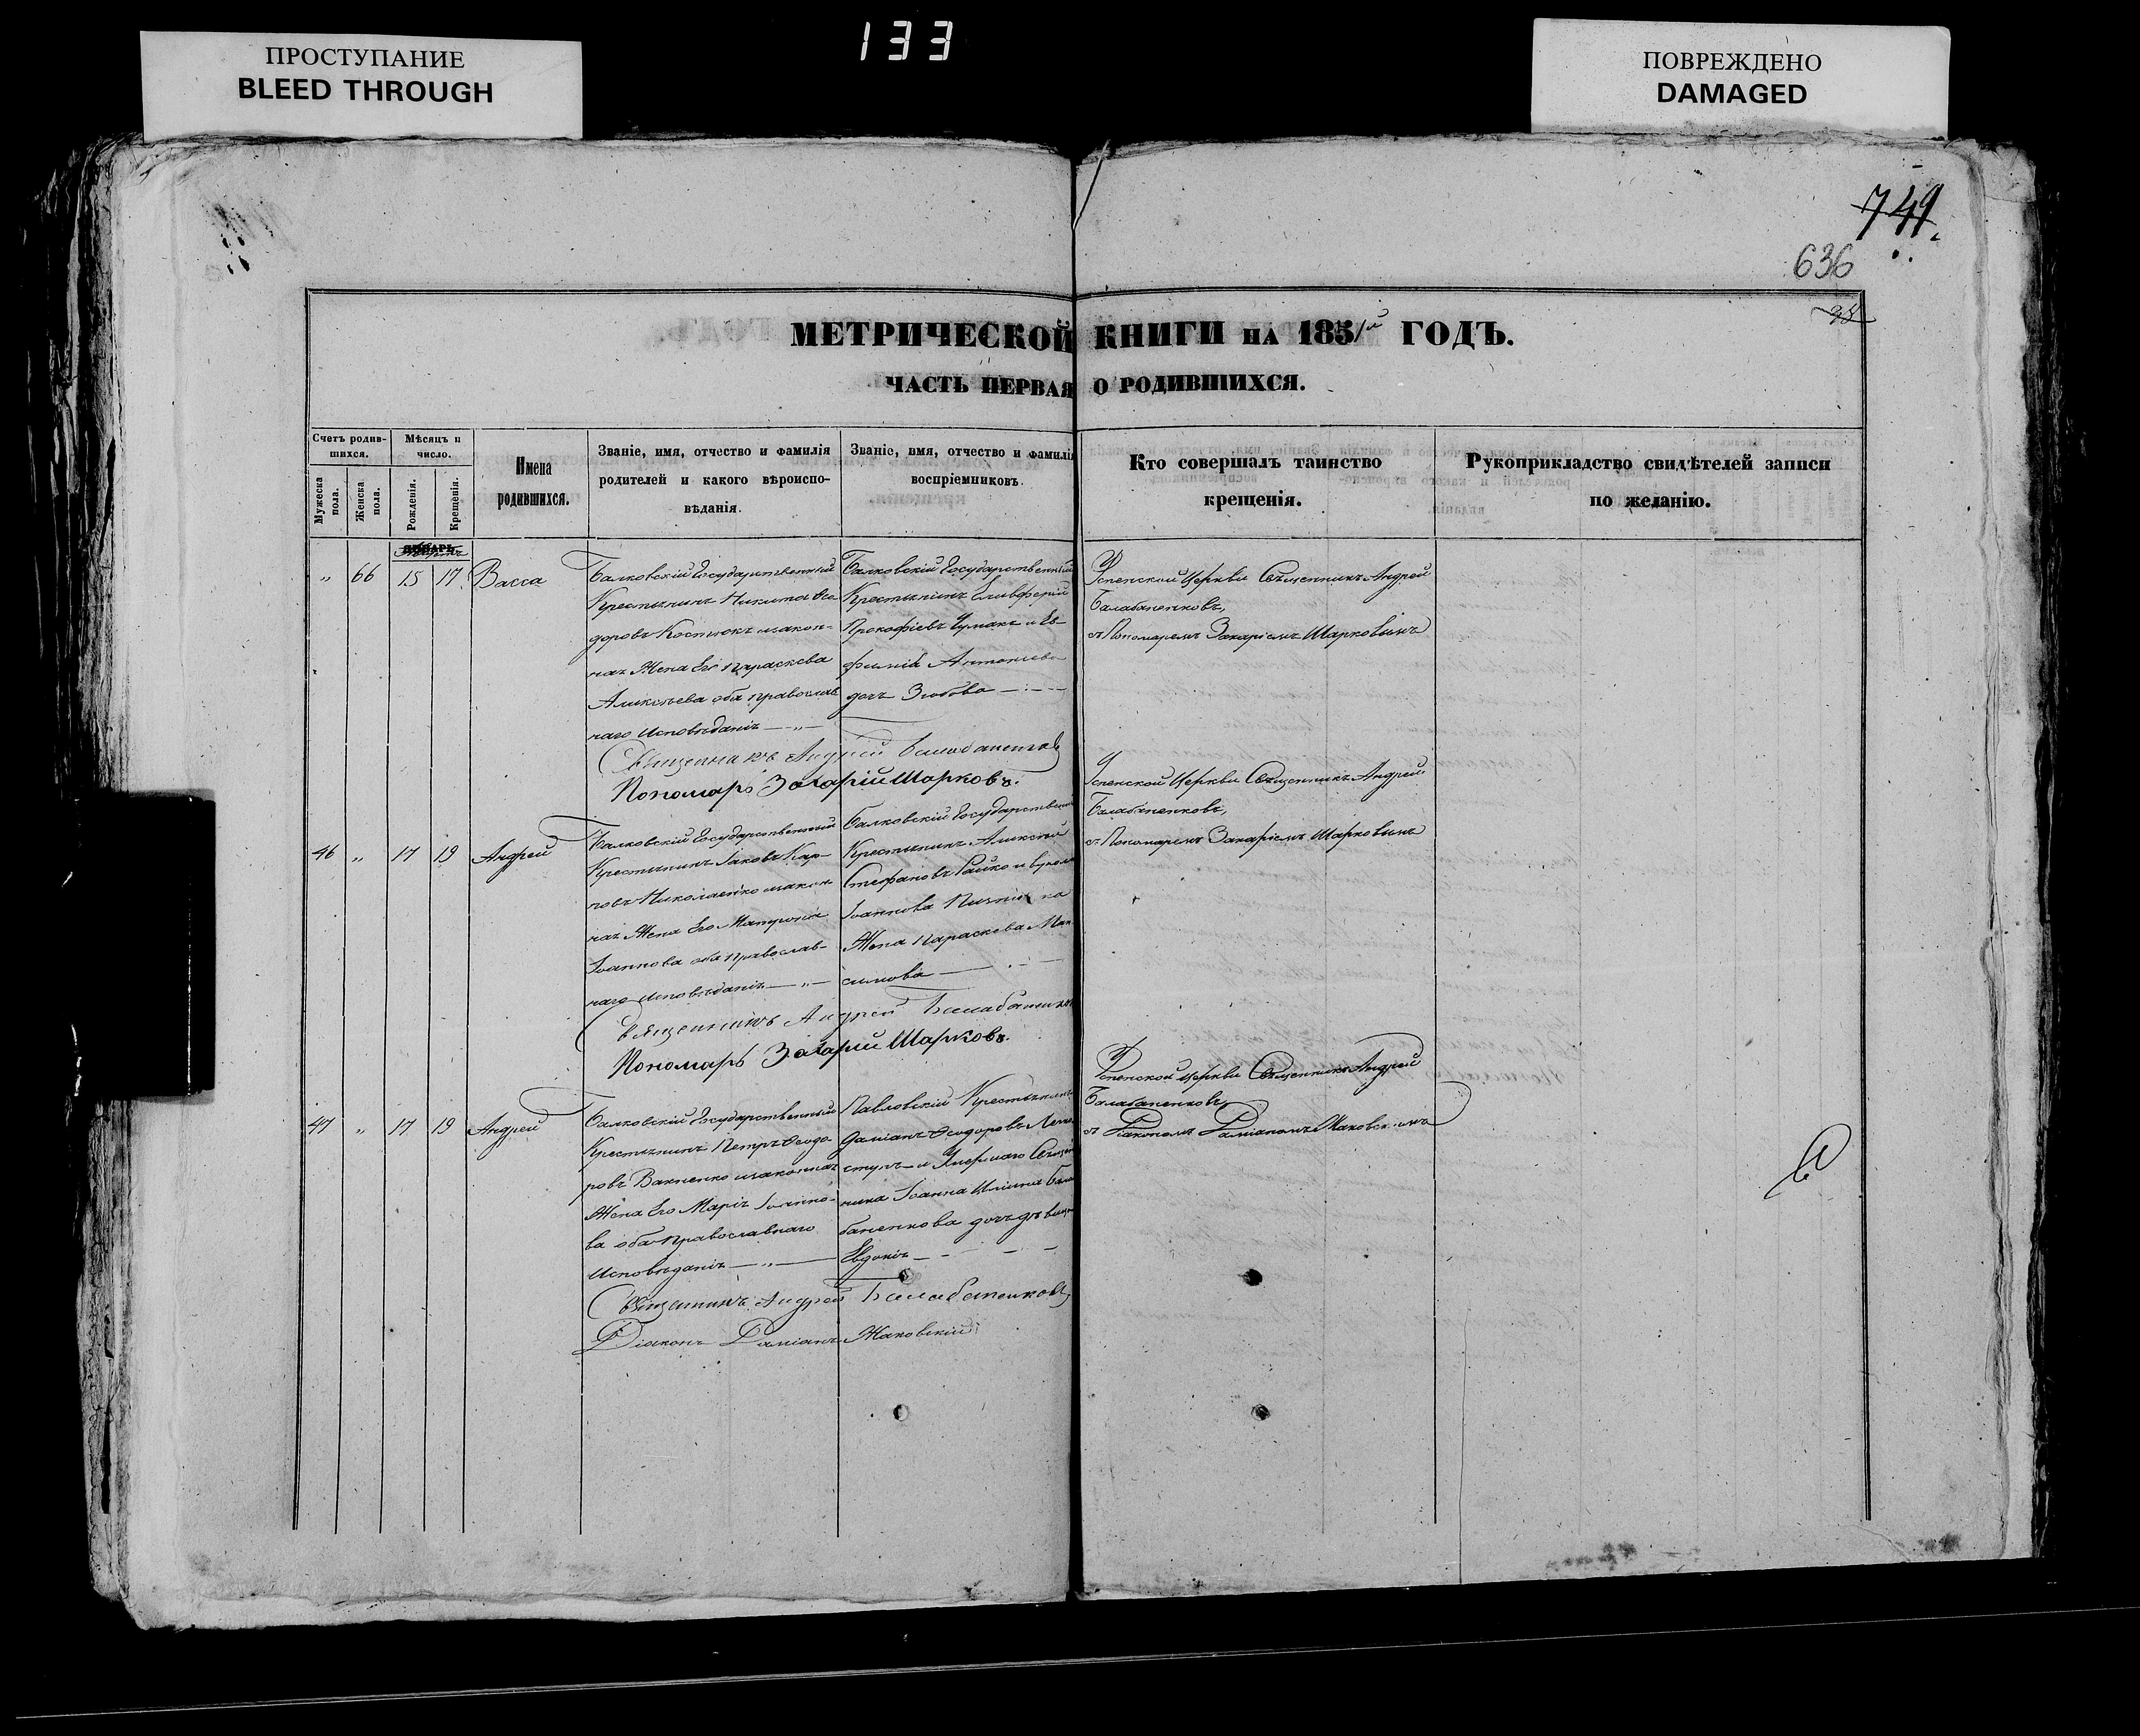 133
ПРОСТУПАНИЕ
BLEED THROUGH
ПОВРЕЖДЕНО
DAMAGED
749.
636
МЕТРИЧЕСКОЙ КНИГИ НА 1851й ГОДЪ.
ЧАСТЬ ПЕРВАЯ О РОДИВШИХСЯ.
Счетъ родив-
шихся.
Мужеска
пола.
Женска
пола.
Мѣсяцъ и
число.
Рожденія.
Крещенія.
Имена
родившихся.
Званіе, имя, отчество и фамилія
родителей и какого вѣроиспо-
вѣданія.
Званіе, имя, отчество и фамилія
воспріемниковъ.
Кто совершалъ таинство
крещенія.
Рукоприкладство свидѣтелей записи
по желанію.
ЯНВАРЬ
„ 66 15 17 Васса
Балковскій Государственный
Крестьянинъ Никита Ѳео-
доровъ Костюкъ изакон-
ная Жена Его Параскева
Алексѣева оба православ
наго исповѣданія — „ —
Балковскій Государственный
Крестьянинъ Елевферій
Прокофіевъ Чумакъ и Ев-
фимія Антоніева
дочь Зюбова
Успенской Церкви Священникъ Андрей
Балабаненковъ,
съ Пономаремъ Захаріемъ Шарковымъ
Священникъ Андрей Балабаненковъ
Пономарь Захарій Шарковъ.
46 „ 17 19 Андрей
Балковскій Государственный
Крестьянинъ Іаковъ Кар-
повъ Николаенко изакон
ная Жена Его Матрона
Іоаннова оба православ-
наго исповѣданія — „ —
Балковскій Государствен
Крестьянинъ Алексѣй
Стефановъ Райко и
Іоаннова на
Жена Параскева Мак
симова
Успенской Церкви Священникъ Андрей
Балабаненковъ,
съ Пономаремъ Захаріемъ Шарковымъ
Священникъ Андрей Балабаненков
Пономарь Захарий Шарковъ.
47 „ 17 19 Андрей
Балковскій Государственный
Крестьянинъ Петръ Ѳеодо-
ровъ Вакненко изаконная
Жена Его Марія Іоанно-
ва оба православнаго
Исповѣданія — „ —
Павловскій Крестьянинъ
Даміанъ Ѳеодоровъ
и Умершаго Священ
ника Іоанна Иліина Бала
баненкова дочь дѣвица
Евдокія
Успенской Церкви Священникъ Андрей
Балабаненковъ
съ Діакономъ Даміаномъ Жаковскимъ
Священникъ Андрей Балабаненковъ
Діаконъ Даміанъ Жаковскій